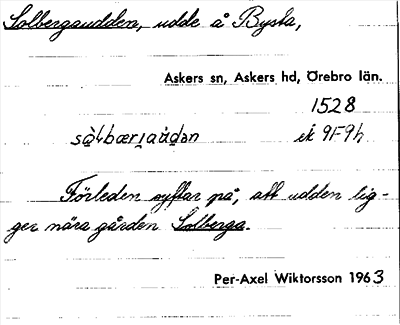 Solbergaudden, udde å Bysta,
Askers sn, Askers hd, Örebro län.
1528
ek 9F9h
Förleden syftar på, att udden lig-
ger nära gården Solberga.
Per-Axel Wiktorsson 1963